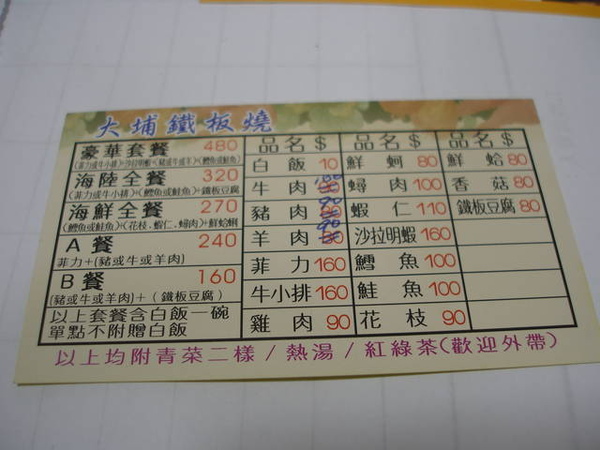 大埔鐵板燒
豪華套餐 480
(菲力或牛小排)+沙拉明蝦+(豬或牛或羊)+(鱈魚或鮭魚)
海陸全餐 320
(菲力或牛小排)+(鱈魚或鮭魚)+鐵板豆腐
海鮮全餐 270
(鱈魚或鮭魚)+(花枝、蝦仁、蟳肉)+鮮蛤蜊
A 餐 240
菲力+(豬或牛或羊肉)
B 餐 160
(豬或牛或羊肉)+(鐵板豆腐)
以上套餐含白飯一碗
單點不附贈白飯
品名 $
白飯 10
牛肉 100
豬肉 90
羊肉 90
菲力 160
牛小排 160
雞肉 90
品名 $
鮮蚵 80
蟳肉 100
蝦仁 110
沙拉明蝦 160
鱈魚 100
鮭魚 100
花枝 90
品名 $
鮮蛤 80
香菇 80
鐵板豆腐 80
以上均附青菜二樣 / 熱湯 / 紅綠茶(歡迎外帶)